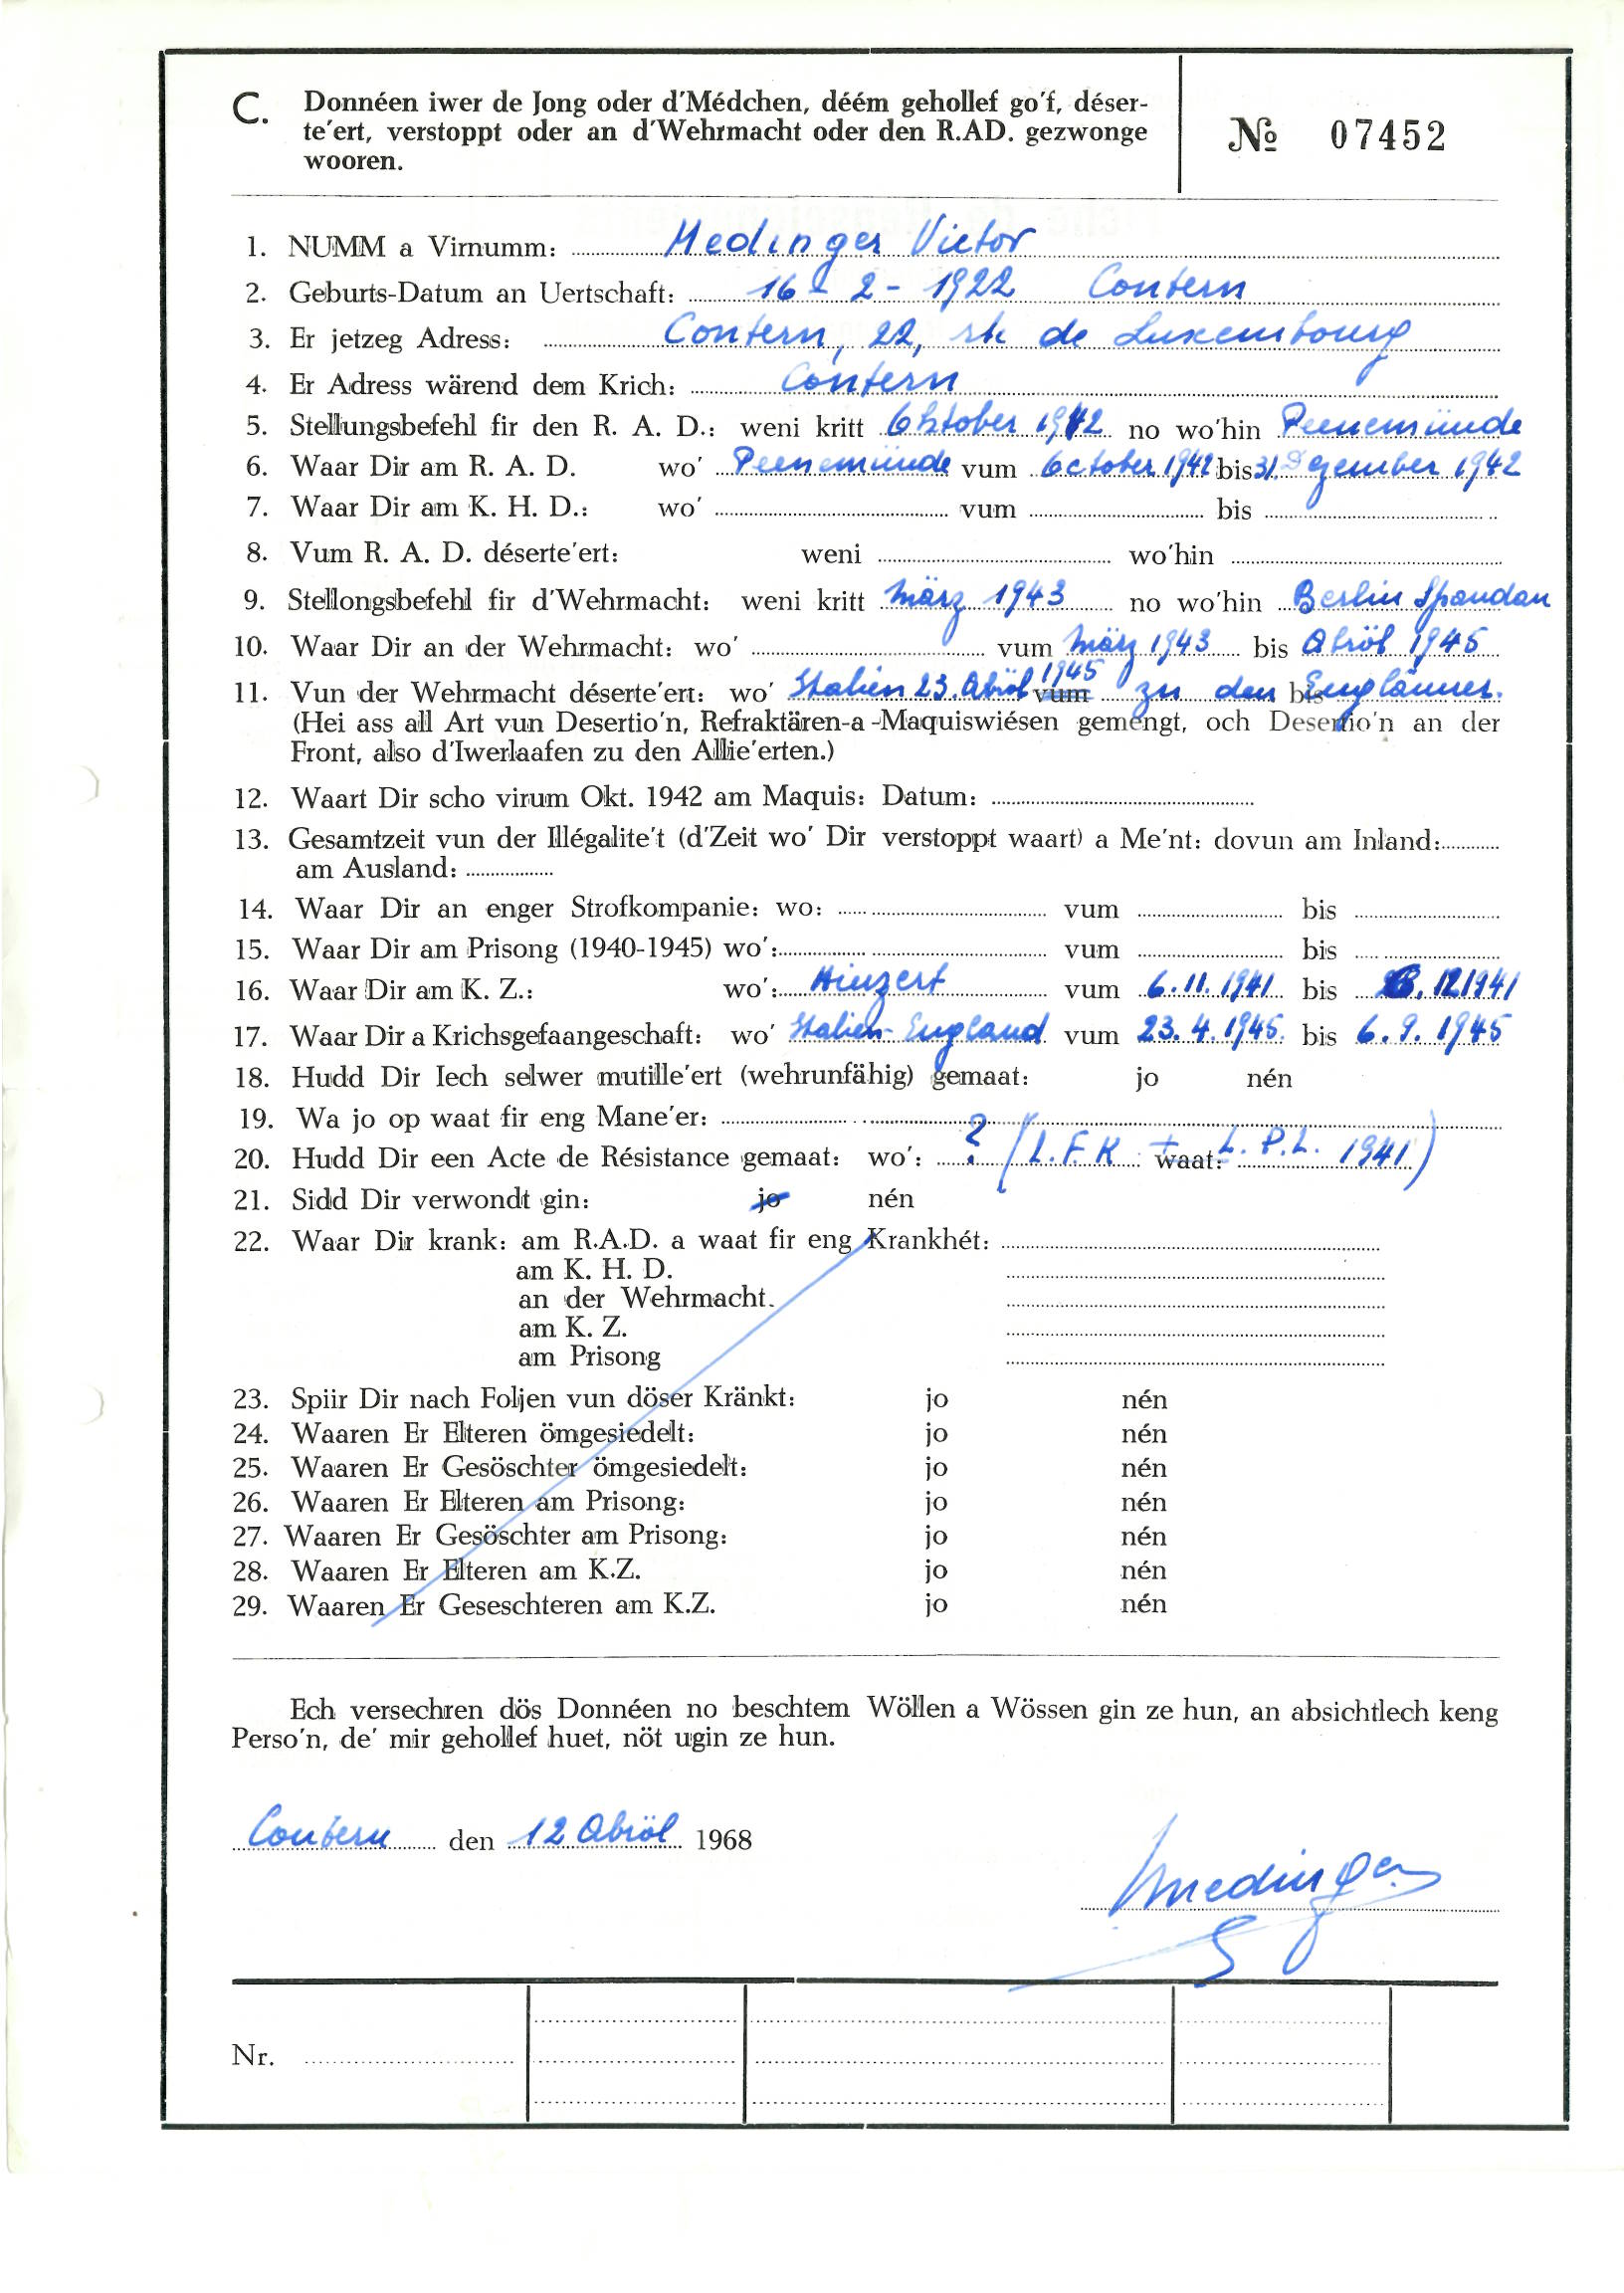 C. Donnéen iwer de Jong oder d'Médchen, déém gehollef go'f, déser-
te'ert, verstoppt oder an d'Wehrmacht oder den R.AD. gezwonge
wooren.
№ 07452
1. NUMM a Virnumm: Medinger Victor
2. Geburts-Datum an Uertschaft: 16 - 2 - 1922 Contern
3. Er jetzeg Adress: Contern, 22, rte de Luxembourg
4. Er Adress wärend dem Krich: Contern
5. Stellungsbefehl fir den R. A. D.: weni kritt Oktober 1942 no wo'hin Peenemünde
6. Waar Dir am R. A. D. wo' Peenemünde vum October 1942 bis 31. Dezember 1942
7. Waar Dir am K. H. D.: wo' vum bis
8. Vum R. A. D. déserte'ert: weni wo'hin
9. Stellongsbefehl fir d'Wehrmacht: weni kritt März 1943 no wo'hin Berlin Spandau
10. Waar Dir an der Wehrmacht: wo' vum März 1943 bis Abröl 1945
11. Vun der Wehrmacht déserte'ert: wo' Italien 23. Abröl 1945 vum zu den bis Englänner.
(Hei ass all Art vun Desertio'n, Refraktären-a-Maquiswiésen gemengt, och Desertio'n an der
Front, also d'Iwerlaafen zu den Allie'erten.)
12. Waart Dir scho virum Okt. 1942 am Maquis: Datum:
13. Gesamtzeit vun der Illégalite't (d'Zeit wo' Dir verstoppt waart) a Me'nt: dovun am Inland:
am Ausland:
14. Waar Dir an enger Strofkompanie: wo: vum bis
15. Waar Dir am Prisong (1940-1945) wo': vum bis
16. Waar Dir am K. Z.: wo': Hinzert vum 6. 11. 1941 bis 12 1941
17. Waar Dir a Krichsgefaangeschaft: wo' Italien - England vum 23. 4. 1945. bis 6. 9. 1945
18. Hudd Dir Iech selwer mutille'ert (wehrunfähig) gemaat: jo nén
19. Wa jo op waat fir eng Mane'er:
20. Hudd Dir een Acte de Résistance gemaat: wo': ? (L.F.K + waat: L.P.L. 1941)
21. Sidd Dir verwondt gin: jo nén
22. Waar Dir krank: am R.A.D. a waat fir eng Krankhét:
am K. H. D.
an der Wehrmacht.
am K. Z.
am Prisong
23. Spiir Dir nach Foljen vun döser Kränkt: jo nén
24. Waaren Er Elteren ömgesiedelt: jo nén
25. Waaren Er Gesöschter ömgesiedelt: jo nén
26. Waaren Er Elteren am Prisong: jo nén
27. Waaren Er Gesöschter am Prisong: jo nén
28. Waaren Er Elteren am K.Z. jo nén
29. Waaren Er Geseschteren am K.Z. jo nén
Ech versechren dös Donnéen no beschtem Wöllen a Wössen gin ze hun, an absichtlech keng
Perso'n, de' mir gehollef huet, nöt ugin ze hun.
Contern den 12 Abröl 1968
Medinger
Nr.